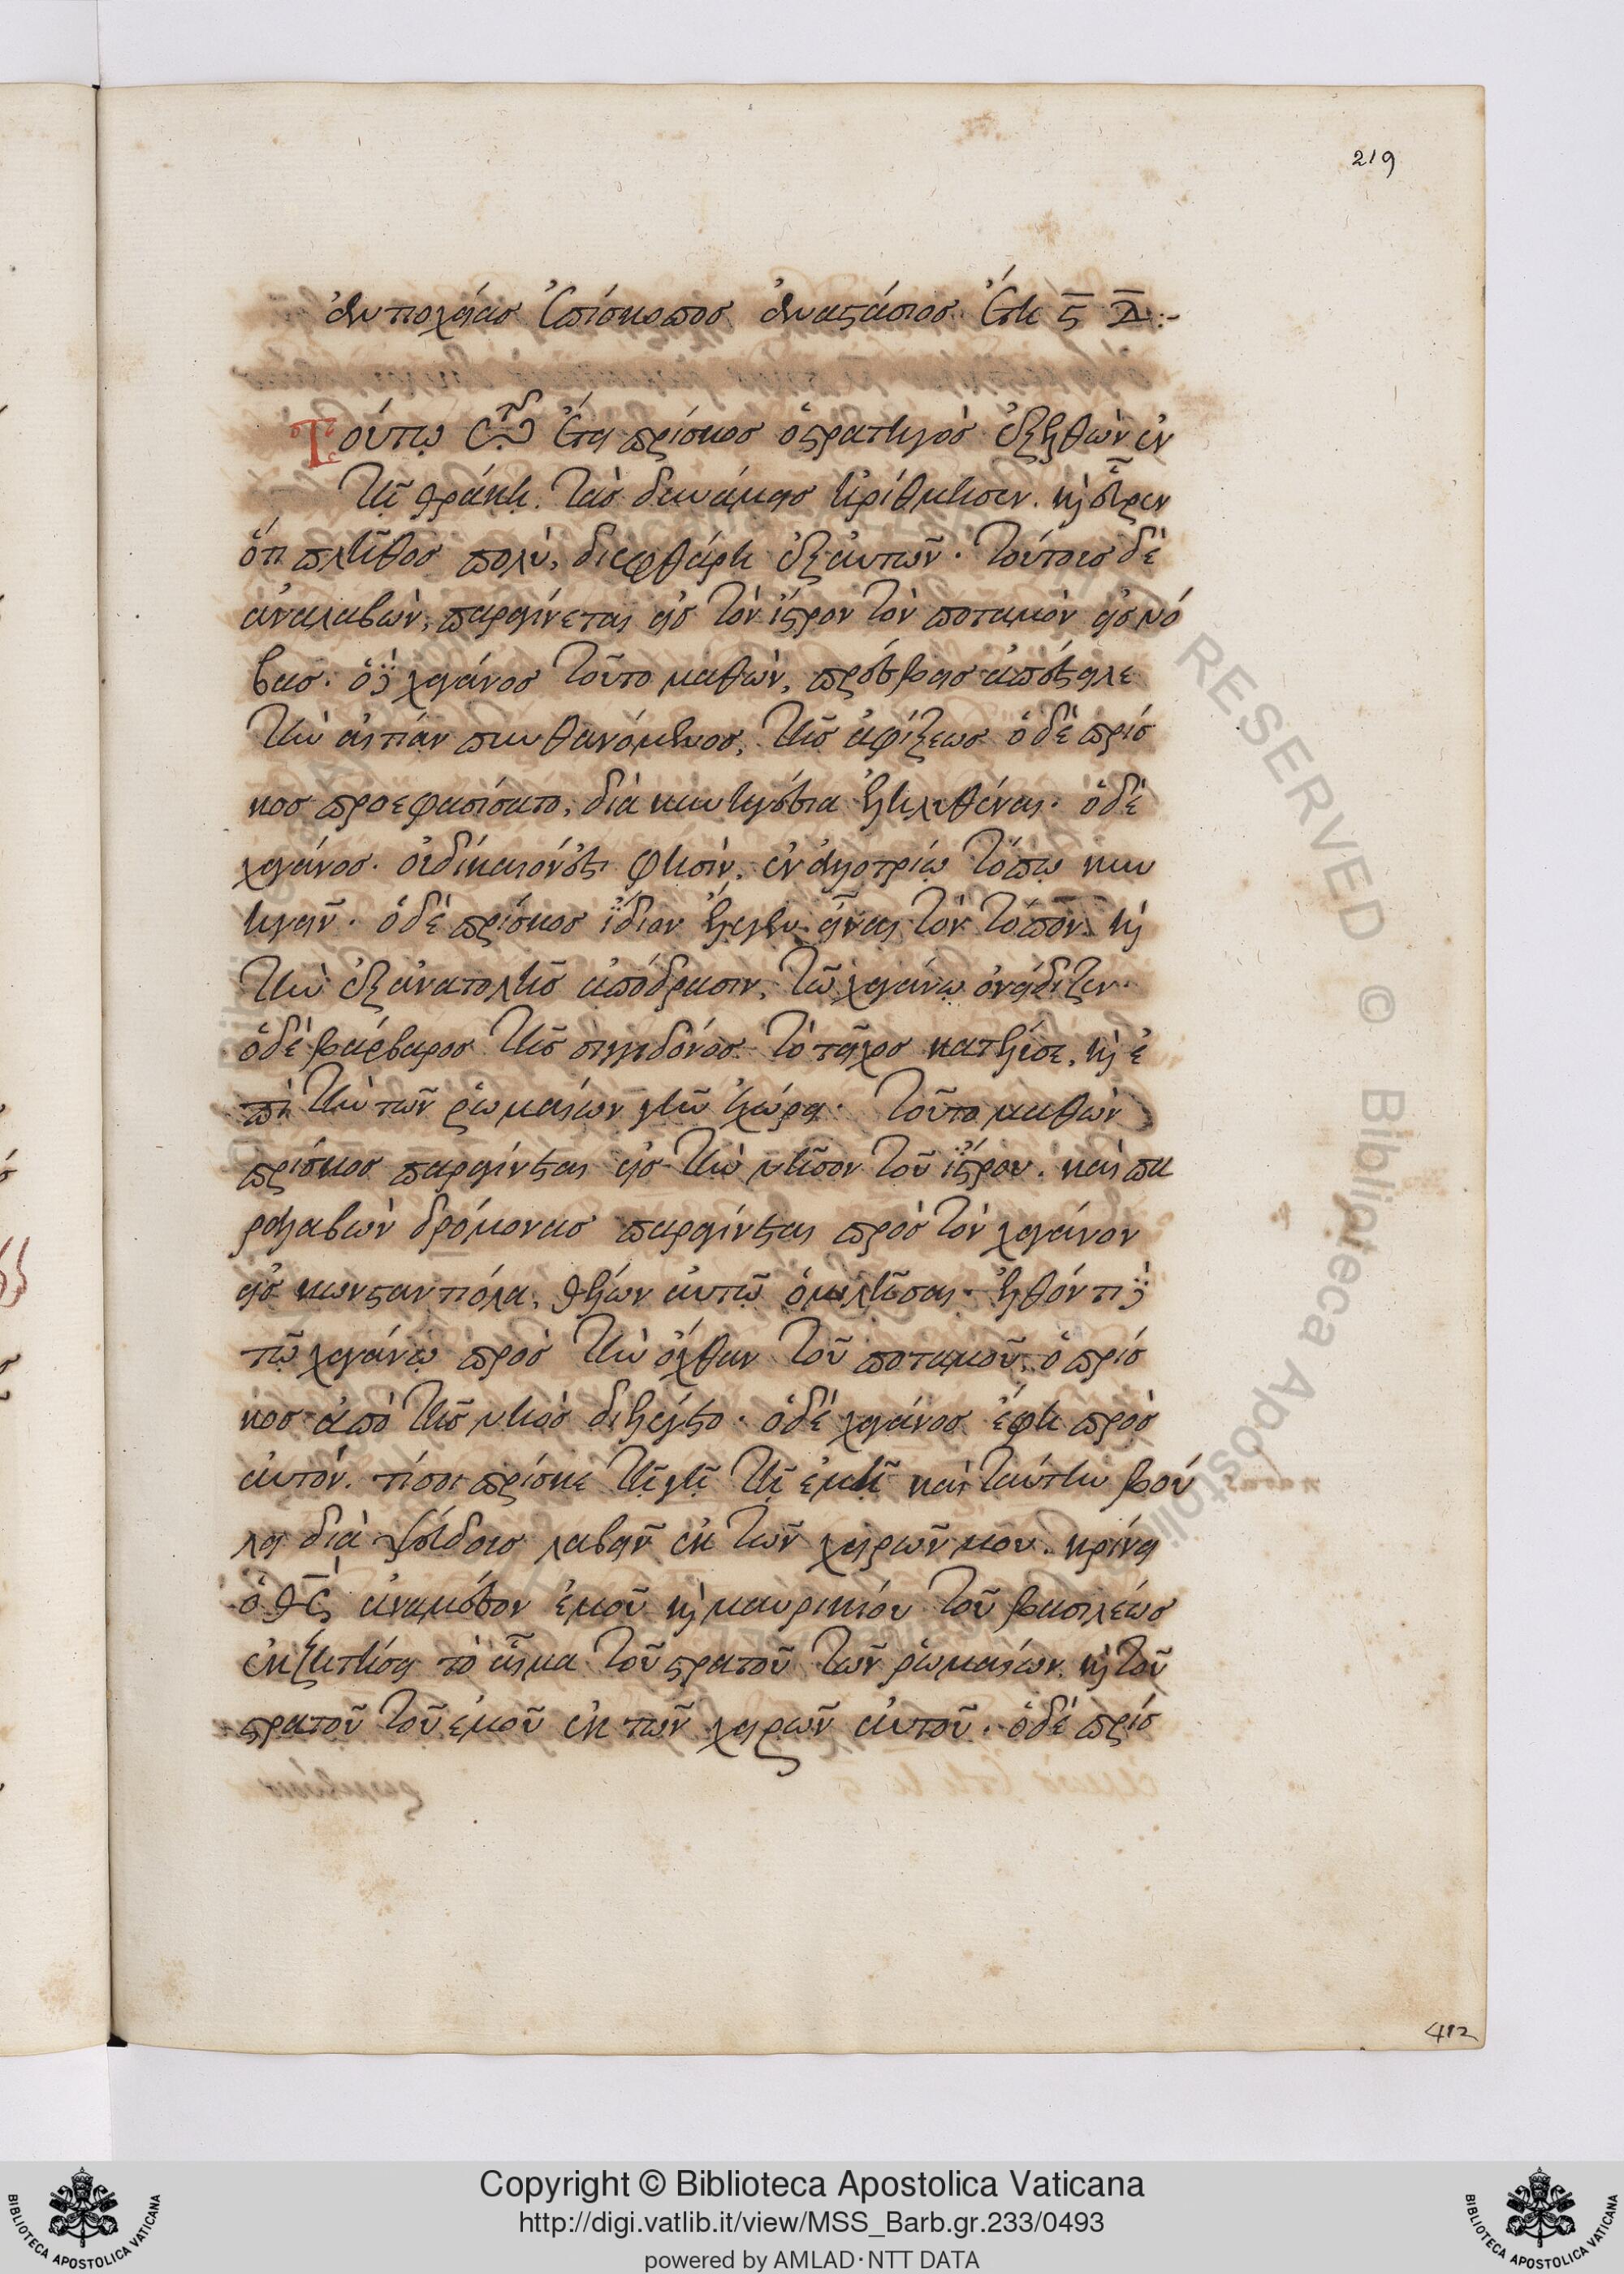 219
ἀντιοχείας ἐπίσκοπος ἀναστάσιος ἔτη ς λ :-
Τούτῳ τῷ ἔτει πρίσκος ὁ στρατηγὸς ἐξελθὼν ἐν
τῇ θράκῃ. τὰς δυνάμεις ἠρίθμησεν. καὶ εὗρεν
ὅτι πλῆθος πολὺ, διεφθάρη ἐξ αὐτῶν. τούτοις δὲ
ἀναλαβὼν, παραγίνεται εἰς τὸν ἴστρον τὸν ποταμὸν εἰς νό
βας. ὁ δὲ χαγάνος τοῦτο μαθὼν, πρέσβεις ἀπέστειλε
τὴν αἰτίαν πυνθανόμενος, τῆς ἀφίξεως ὁ δὲ πρίσ
κος προεφασίσατο, διὰ κυνηγέσια ἐληλυθέναι. ὁ δὲ
χαγάνος. οὐ δίκαιόν ἐστι φησὶν, ἐν ἀλλοτρίῳ τόπῳ κυν
ηγεῖν. ὁ δὲ πρίσκος ἴδιον ἔλεγεν εἶναι τὸν τόπον. καὶ
τὴν ἐξ ἀνατολῆς ἀπόδρασιν, τῷ χαγάνῳ ὀνείδιζεν.
ὁ δὲ βάρβαρος τῆς σιγγιδόνος τὸ τεῖχος κατέλυσε, καὶ ἐ
πὶ τὴν τῶν ῥωμαίων γῆν ἐχώρει. τοῦτο μαθὼν
πρίσκος παραγίνεται εἰς τὴν νῆσον τοῦ ἴστρου. καὶ πα
ραλαβὼν δρόμονας παραγίνεται πρὸς τὸν χαγάνον
εἰς κωνσταντιόλα, θέλων αὐτῷ ὁμιλῆσαι. ἐλθόντι δὲ
τῷ χαγάνῳ πρὸς τὴν ὄχθαν τοῦ ποταμοῦ, ὁ πρίσ
κος ἀπὸ τῆς νηὸς διελέγετο. ὁ δὲ χαγάνος ἔφη πρὸς
αὐτόν. τί σοι πρίσκε τῇ γῇ τῇ ἐμῇ καὶ ταύτην βού
λει διὰ ψεύδους λαβεῖν ἐκ τῶν χειρῶν μου. κρίνει
ὁ θς ἀναμέσον ἐμοῦ καὶ μαυρικίου τοῦ βασιλέως
ἐκζητήσει τὸ αἷμα τοῦ στρατοῦ τῶν ῥωμαίων. καὶ τοῦ
στρατοῦ τοῦ ἐμοῦ ἐκ τῶν χειρῶν αὐτοῦ. ὁ δὲ πρίσ
412
RESERVED © Biblioteca Apostolica
Copyright © Biblioteca Apostolica Vaticana
http://digi.vatlib.it/view/MSS_Barb.gr.233/0493
powered by AMLAD·NTT DATA
BIBLIOTECA APOSTOLICA VATICANA
BIBLIOTECA APOSTOLICA VATICANA